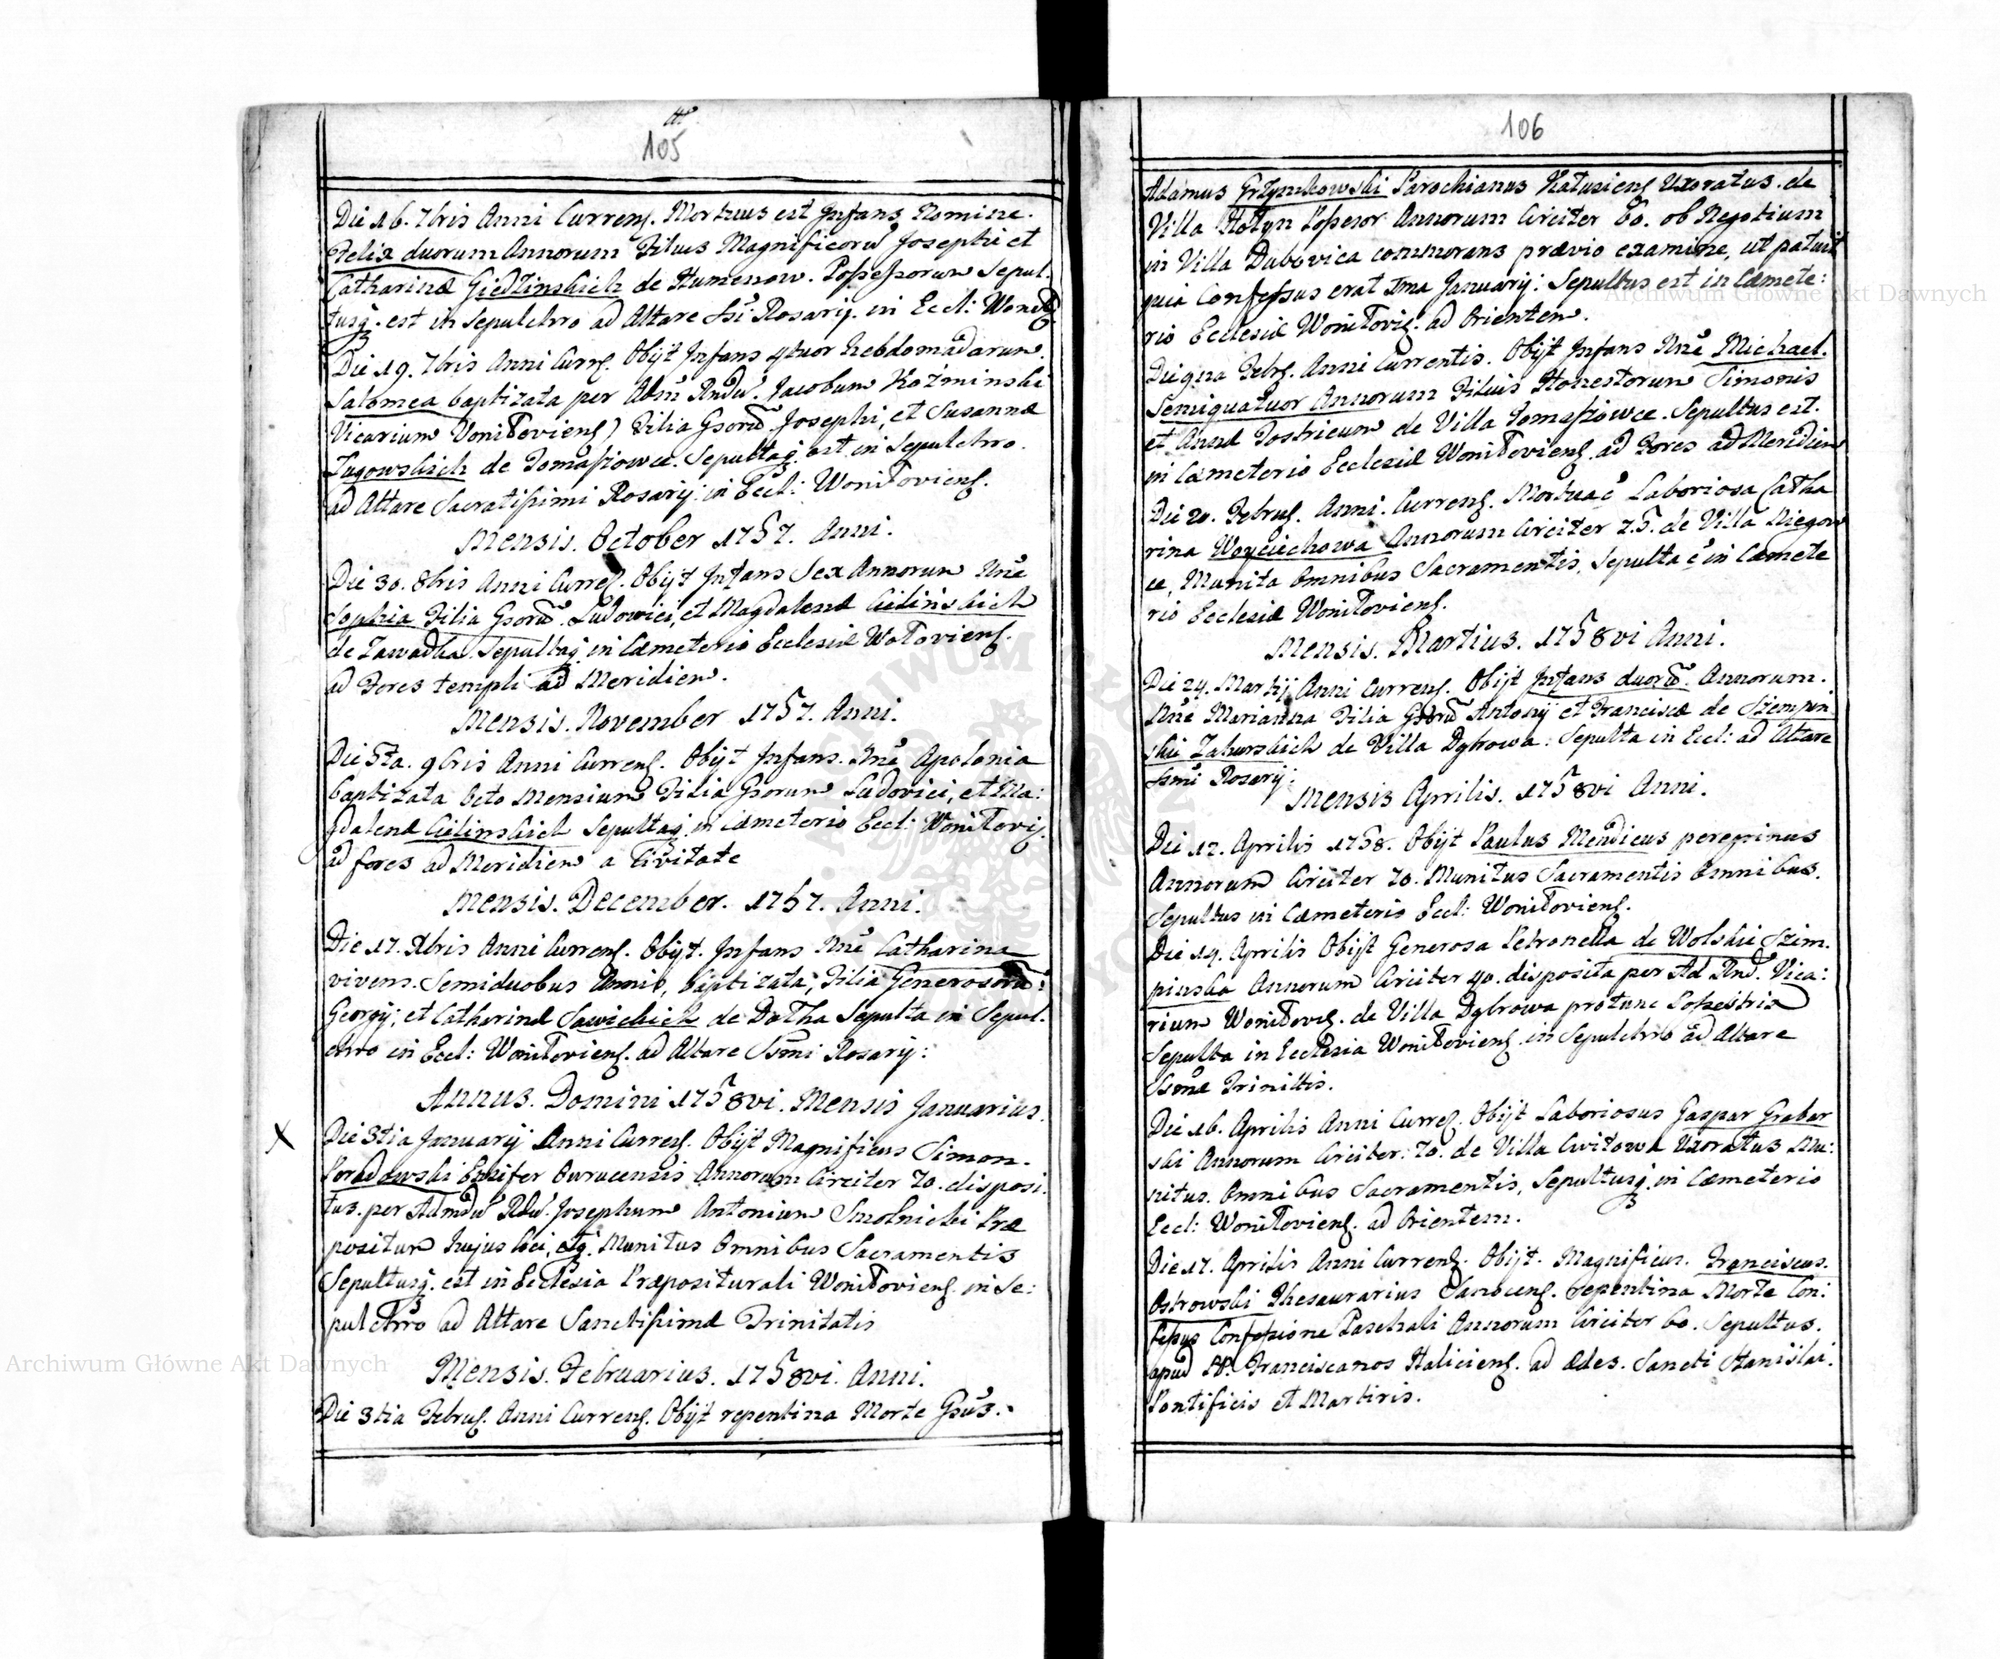 105
Die 16. 7bris Anni Currens. Mortuus est Infans Nomine.
Felix duorum Annorum Filius Magnificorũ Josephi et
Catharinæ Giedzinskich de Humenow. Possessorum Sepul-
tusq. est in Sepulchro ad Altare Ssi Rosarij. in Eccl: Woniłł
Die 19. 7bris Anni Curr. Obijt Infans 4tuor hebdomadarum.
Salomea baptizata per Adm Rndũ. Jacobum Koźminski
Vicarium Woniłłoviens) Filia Gsorũ Josephi, et Susannæ
Zugowskich de Tomaszowce. Sepultaq. est in Sepulchro.
ad Altare Sacratissimi Rosarij: in Eccl: Woniłłoviens.
Mensis. October 1757. Anni.
Die 30. 8bris Anni Curres. Obijt Infans Sex Annorum Nñe
Sophia Filia Gsorũ. Ludovici, et Magdalenæ Cielinskich
de Zawadka. Sepultaq. in Cæmeterio Ecclesiæ Wołoviens.
ad Fores templi ad Meridiem.
Mensis. November 1757. Anni.
Die 5ta. 9bris Anni Currens. Obijt Infans. Nñe Apolonia
baptizata Octo Mensium Filia Gsorum Ludovici, et Ma:
gdalenæ Cielinskich Sepultaq. in Cæmeterio Eccl: Woniłłovis.
ad fores ad Meridiem a Civitate
Mensis. December. 1757. Anni.
Die 17. Xbris Anni Currens. Obijt. Infans Nñe Catharina
vivens. Semiduobus Annis, baptizata, Filia Generosorũ:
Georgij, et Catharinæ Sawickich de Dołha Sepulta in Sepul.
chro in Eccl: Woniłłoviens. ad Altare Ssmi Rosarij:
Annus. Domini 1758vi. Mensis Januarius.
X Die 3tia Januarij Anni Currens. Obijt Magnificus Simon.
Poradowski Ensifer Owrucensis Annorum Circiter 70. disposi.
tus. per Admdũ Rdũ. Josephum Antonium Smolnicki Præ
positum hujus loci, atq. Munitus Omnibus Sacramentis
Sepultusq. est in Ecclesia Præpositurali Woniłłoviens. in Se:
pulchro ad Altare Sanctissimæ Trinitatis
Mensis. Februarius. 1758vi. Anni.
Die 3tia Februs. Anni Currens. Obijt repentina Morte Gsus.
106
Adamus Grzymkowski Parochianus Katusiens Uxoratus. de
Villa Hołyn Possesor Annorum Circiter 60. ob Negotium
in Villa Dubovica commorans prævio examine, ut patuit
quia Confessus erat 1ma Januarij: Sepultus est in Cæmete:
rio Ecclesiæ Woniłłovis. ad Orientem.
Die 9na Febrs. Anni Currentis. Obijt Infans Nñe Michael.
Semiquatuor Annorum Filuis Honestorum Simonis
et Annæ Postricum de Villa Tomaszowce. Sepultus est.
in Cæmeterio Ecclesiæ Woniłłoviens. ad Fores ad Meridiem
Die 20. Februs. Anni. Currens. Mortua ẽ Laboriosa Catha
rina Woyciechowa Annorum Circiter 75. de Villa Niegow
ce, Munita Omnibus Sacramentis, Sepulta ẽ in Cæmete
rio Ecclesiæ Woniłłoviens.
Mensis. Martius. 1758vi Anni.
Die 24. Martij Anni Currens. Obijt Infans duorũ. Annorum.
Nñe Marianna Filia Gsorũ Antonij et Franciscæ de Szempin
skie Zakurskich de Villa Dąbrowa: Sepulta in Eccl: ad Altare
Ssmi Rosarij:
Mensis Aprilis. 1758vi Anni.
Die 12. Aprilis 1758. Obijt Paulus Mendicus peregrinus
Annorum Circiter 70. Munitus Sacramentis Omnibus.
Sepultus in Cæmeterio Eccl: Woniłłoviens.
Die 14. Aprilis Obijt Generosa Petronella de Wolskie Szim.
pinska Annorum Circiter 40. disposita per Ad Rnd. Vica:
rium Woniłłovs. de Villa Dąbrowa protunc Possestrix
Sepulta in Ecclesia Woniłłoviens in Sepulchro ad Altare
Ssmæ Trinittis.
Die 16. Aprilis Anni Curres. Obijt Laboriosus Gaspar Grabar
ski Annorum Circiter. 70. de Villa Cwitowa Uxoratus Mu:
nitus. Omnibus Sacramentis, Sepultusq. in Cæmeterio
Eccl: Woniłłoviens. ad Orientem.
Die 17. Aprilis Anni Currens. Obijt. Magnificus. Franciscus.
Ostrowski Thesaurarius Sanocens. repentina Morte Con:
fessus Confessione Paschali Annorum Circiter 60. Sepultus.
apud PP. Franciscanos Haliciens. ad ædes. Sancti Stanislai.
Pontificis et Martiris.
Archiwum Główne Akt Dawnych
Archiwum Główne Akt Dawnych